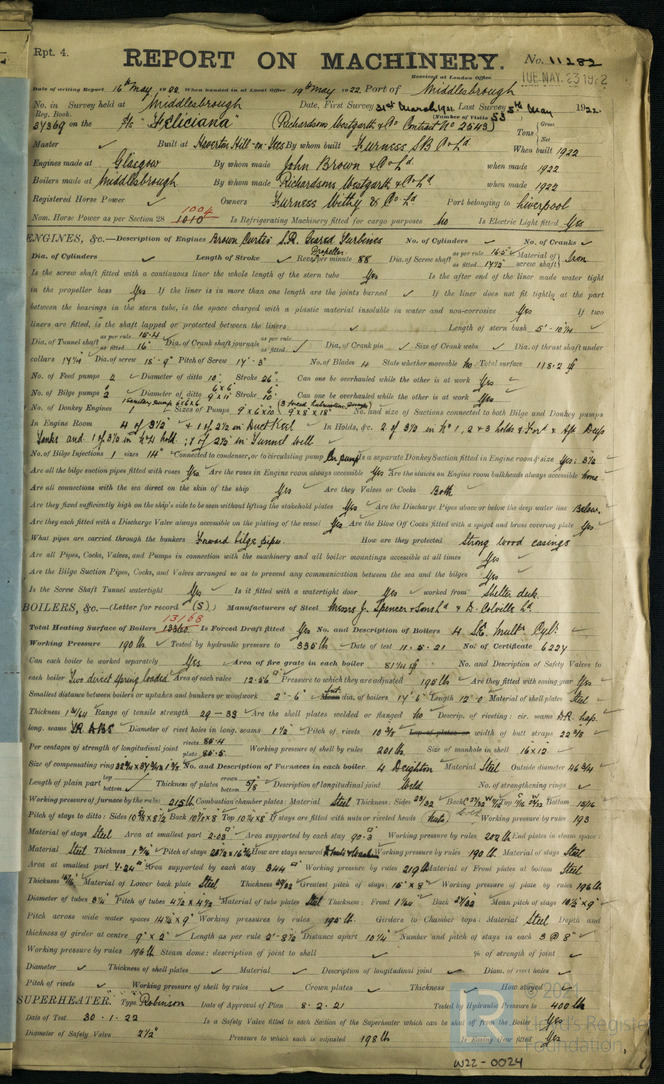 Rpt. 4.
REPORT ON MACHINERY.
No. 11282
Received at London Office TUE. MAY. 23 1922
Date of writing Report 16th May 1922 When handed in at Local Office 19th May 1922 Port of Middlesbrough
No. in Survey held at Middlesbrough Date, First Survey 31st March 1921 Last Survey 5th May 1922
Reg. Book. (Number of Visits 53)
37369 on the S/S "Feliciana" (Richardsons Westgarth & Co Contract No 2543) Tons { Gross Net
Master ✓ Built at Haverton Hill-on-Tees By whom built Furness S.B. Co Ld When built 1922
Engines made at Glasgow By whom made John Brown & Co Ld when made 1922
Boilers made at Middlesbrough By whom made Richardsons Westgarth & Co Ld when made 1922
Registered Horse Power ✓ Owners Furness Withy & Co Ld Port belonging to Liverpool
Nom. Horse Power as per Section 28 1010 1004 Is Refrigerating Machinery fitted for cargo purposes No Is Electric Light fitted Yes
ENGINES, &c.—Description of Engines Brown Curtis S.R. Geared Turbines No. of Cylinders ✓ No. of Cranks ✓
Dia. of Cylinders ✓ Length of Stroke ✓ Revs. per minute Propeller 88 Dia. of Screw shaft as per rule 16.5" as fitted 17½" Material of screw shaft Iron
Is the screw shaft fitted with a continuous liner the whole length of the stern tube Yes Is the after end of the liner made water tight
in the propeller boss Yes If the liner is in more than one length are the joints burned ✓ If the liner does not fit tightly at the part
between the bearings in the stern tube, is the space charged with a plastic material insoluble in water and non-corrosive Yes If two
liners are fitted, is the shaft lapped or protected between the liners ✓ Length of stern bush 5'-10¼"
Dia. of Tunnel shaft as per rule as fitted 16" Dia. of Crank shaft journals as per rule as fitted ✓ Dia. of Crank pin ✓ Size of Crank webs ✓ Dia. of thrust shaft under
collars 17¼" Dia. of screw 18'-9" Pitch of Screw 17'-3" No. of Blades 4 State whether moveable No Total surface 118.2 sq
No. of Feed pumps 2 Diameter of ditto 10" Stroke 26" Can one be overhauled while the other is at work Yes
No. of Bilge pumps 2 Diameter of ditto Stroke Can one be overhauled while the other is at work Yes
No. of Donkey Engines Sizes of Pumps No. and size of Suctions connected to both Bilge and Donkey pumps
In Engine Room 4 of 3½" & 1 of 2½ in duct keel In Holds, &c. 2 of 3½ in No 1, 2 & 3 holds & Fort & Aft Deep
Tanks and 1 of 3½ in No 4 hold; 1 of 2½ in Tunnel well
No. of Bilge Injections 1 sizes 14" Connected to condenser, or to circulating pump Cir. pump Is a separate Donkey Suction fitted in Engine room & size Yes: 3½
Are all the bilge suction pipes fitted with roses Yes Are the roses in Engine room always accessible Yes Are the sluices on Engine room bulkheads always accessible None
Are all connections with the sea direct on the skin of the ship Yes Are they Valves or Cocks Both
Are they fixed sufficiently high on the ship's side to be seen without lifting the stokehold plates Yes Are the Discharge Pipes above or below the deep water line Below
Are they each fitted with a Discharge Valve always accessible on the plating of the vessel Yes Are the Blow Off Cocks fitted with a spigot and brass covering plate Yes
What pipes are carried through the bunkers Forward bilge pipes How are they protected Strong wood casings
Are all Pipes, Cocks, Valves, and Pumps in connection with the machinery and all boiler mountings accessible at all times Yes
Are the Bilge Suction Pipes, Cocks, and Valves arranged so as to prevent any communication between the sea and the bilges Yes
Is the Screw Shaft Tunnel watertight Yes Is it fitted with a watertight door Yes worked from Shelter deck
BOILERS, &c.—(Letter for record (S)) Manufacturers of Steel Messrs J. Spencer & Sons Ld & D. Colville Ld
Total Heating Surface of Boilers 13168 Is Forced Draft fitted Yes No. and Description of Boilers 4 S.E. Mult. Cyl.
Working Pressure 190 lb Tested by hydraulic pressure to 335 lb Date of test 11.5.21 No. of Certificate 6227
Can each boiler be worked separately Yes Area of fire grate in each boiler 81¼ sq No. and Description of Safety Valves to
each boiler Two direct spring loaded Area of each valve 12.56 Pressure to which they are adjusted 195 lb Are they fitted with easing gear Yes
Smallest distance between boilers or uptakes and bunkers or woodwork 2'-6" dia. of boilers 17'-6" Length 12'-0 Material of shell plates Steel
Thickness Range of tensile strength 29-33 Are the shell plates welded or flanged No Descrip. of riveting: cir. seams D.R. lap.
long. seams TR DBS Diameter of rivet holes in long. seams 1½" Pitch of rivets 10⅜ width of butt straps 22⅞
Per centages of strength of longitudinal joint rivets 88.4 plate 85.5 Working pressure of shell by rules 201 lb Size of manhole in shell 16 x 12
Size of compensating ring No. and Description of Furnaces in each boiler 4 Deighton Material Steel Outside diameter 46¾
Length of plain part top bottom Thickness of plates crown bottom ⅝ Description of longitudinal joint Weld No. of strengthening rings ✓
Working pressure of furnace by the rules 215 lb Combustion chamber plates: Material Steel Thickness: Sides 27/32 Back Top Bottom 15/16
Pitch of stays to ditto: Sides Back Top If stays are fitted with nuts or riveted heads Nuts Working pressure by rules 193
Material of stays Steel Area at smallest part 2.03 Area supported by each stay 90.3 Working pressure by rules 202 lb End plates in steam space:
Material Steel Thickness Pitch of stays How are stays secured Working pressure by rules 190 lb Material of stays Steel
Area at smallest part 7.24 Area supported by each stay 344 Working pressure by rules 219 lb Material of Front plates at bottom Steel
Thickness Material of Lower back plate Steel Thickness 29/32 Greatest pitch of stays 15" x 8" Working pressure of plate by rules 196 lb
Diameter of tubes Pitch of tubes 4½ x 4½ Material of tube plates Steel Thickness: Front Back 27/32 Mean pitch of stays
Pitch across wide water spaces 14½ x 9" Working pressures by rules 195 lb Girders to Chamber tops: Material Steel Depth and
thickness of girder at centre 9" x 2" Length as per rule Distance apart 10¼" Number and pitch of stays in each 3 @ 8"
Working pressure by rules 196 lb Steam dome: description of joint to shell ✓ % of strength of joint ✓
Diameter ✓ Thickness of shell plates ✓ Material ✓ Description of longitudinal joint ✓ Diam. of rivet holes ✓
Pitch of rivets ✓ Working pressure of shell by rules ✓ Crown plates ✓ Thickness ✓ How stayed ✓
SUPERHEATER. Type Robinson Date of Approval of Plan 8.2.21 Tested by Hydraulic Pressure to 400 lb
Date of Test 30.1.22 Is a Safety Valve fitted to each Section of the Superheater which can be shut off from the Boiler Yes
Diameter of Safety Valve 2½" Pressure to which each is adjusted 198 lb Is Easing Gear fitted Yes
© 2021
Lloyd's Register
Foundation
W22-0024